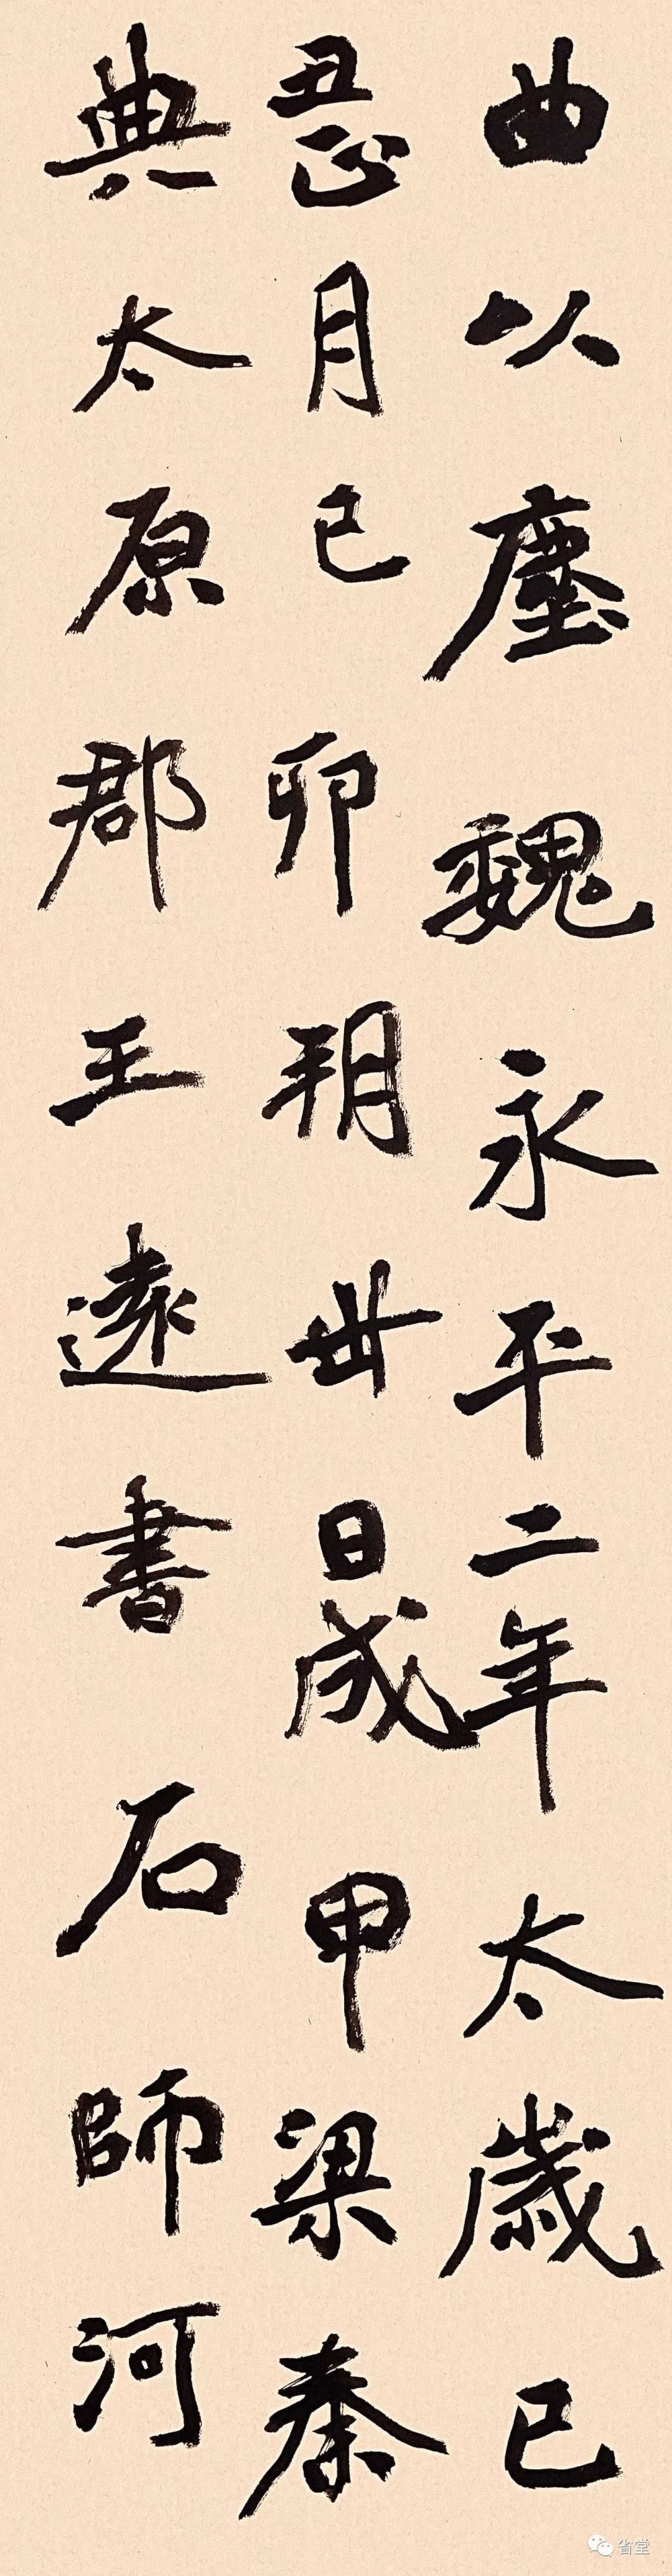 曲以塵魏永平二年太歲己
丑正月己卯朔卅日成甲梁秦
典太原郡王遠書石師河
省堂